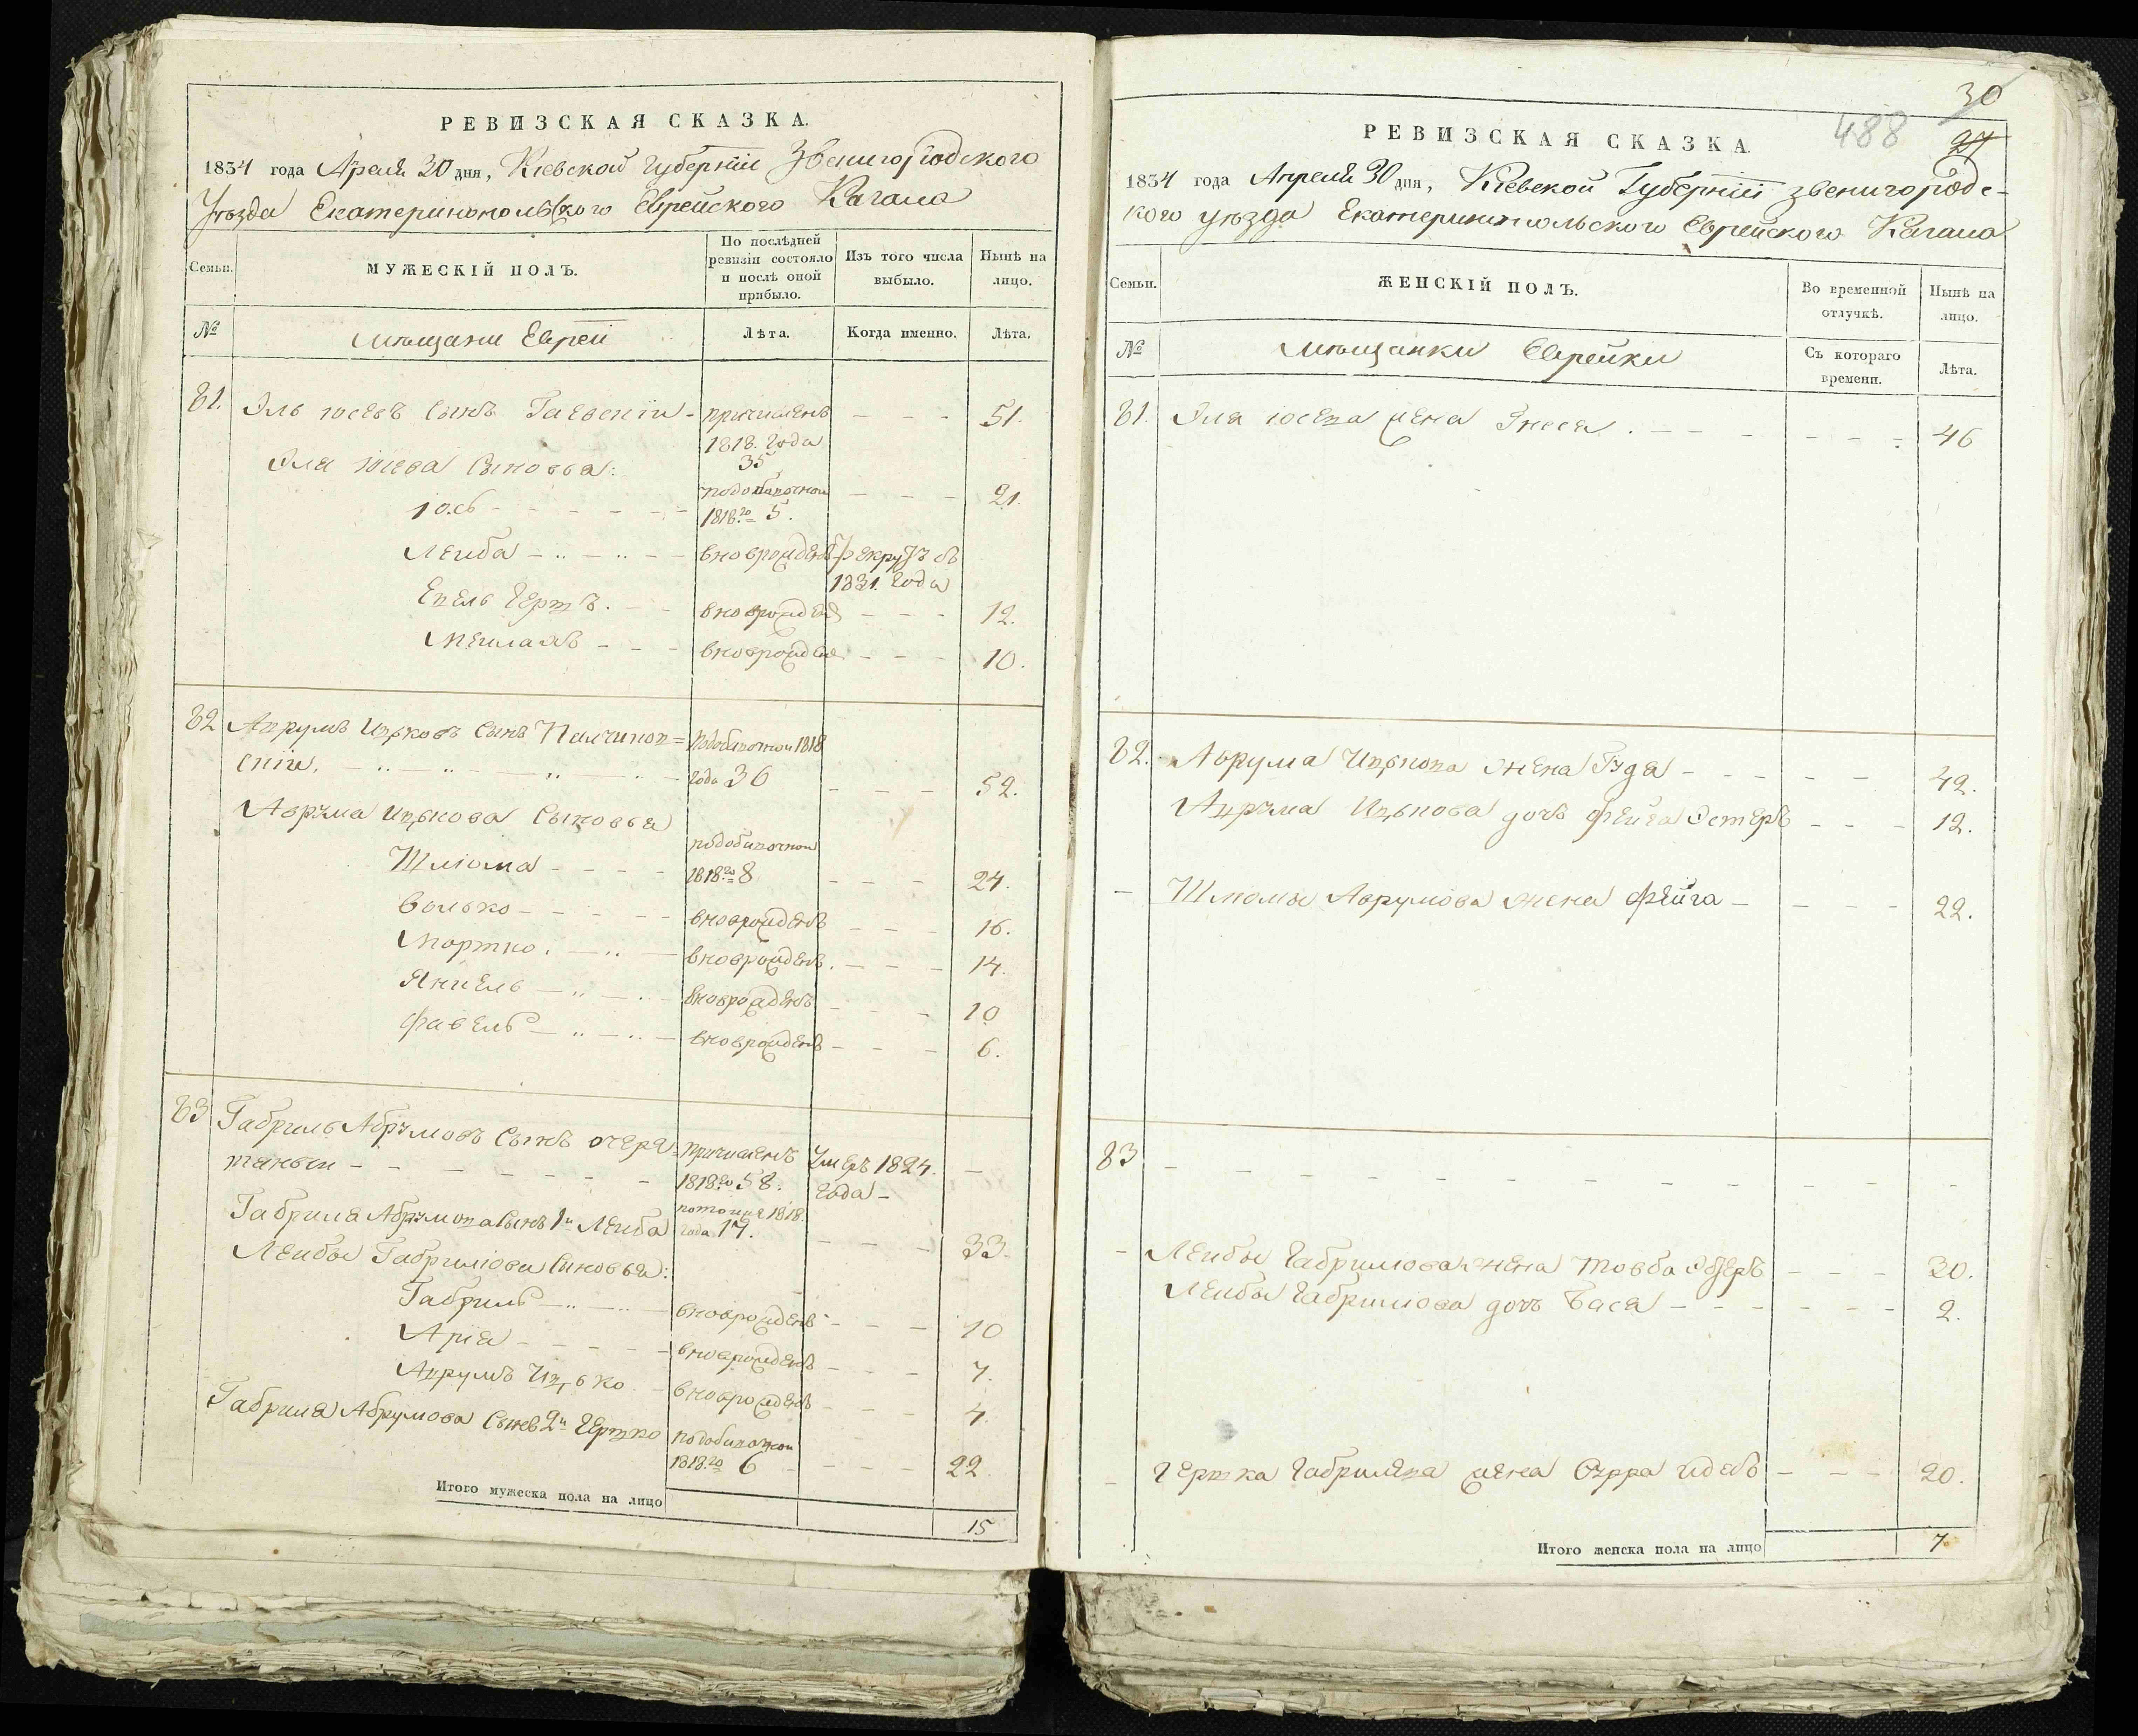 РЕВИЗСКАЯ СКАЗКА.
1834 года Апреля 30 дня, Кіевской Губерніи Звенигородского
Уѣзда Екатеринопольского Еврейского Кагала
Семьи.
МУЖЕСКІЙ ПОЛЪ.
По послѣдней ревизіи состояло и послѣ оной прибыло.
Изъ того числа выбыло.
Нынѣ на лицо.
№
мѣщани Евреи
Лѣта.
Когда именно.
Лѣта.
81. Эль Юсевъ сынъ - причисленъ 1818. года 35 - - - 51.
Эля Юсева сыновья:
Юсь - - - - - по добавочной 1818.го 5. - - - 21.
Леиба - - - - вноврожденъ рекрутъ въ 1831. года
Гершъ. - - вноврожден - - - 12.
Меилахъ - - - вноврожден - - - 10.
82 Аврумъ Ицковъ сынъ по добавочной 1818
года 36 - - - 52.
Аврума Ицькова сыновья
Шліома - - - - по добавочной 1818.го 8 - - - 24.
Волько - - - - - вноврожденъ - - - 16.
Мортко. - - вноврожденъ. - - - 14.
Янкель - - вноврожденъ - - - 10
Фавель - - - вноврожденъ - - - 6.
83 Габриль Абрумовъ сынъ очере= причисленъ умеръ 1824. -
тяныи - - - - - - 1818.го 58. года -
Габриля Абрумова сынъ 1й Леиба 1818. года 17. - - - 33.
Леибы Габриліова сыновья:
Габриль - - - вноврожденъ - - - 10
Арія - - - - - вноврожденъ - - - 7.
Аврумъ Ицько. - вноврожденъ - - - 4.
Габриля Абрумова сынъ 2й Гершко по добавочной 1818.го 6 - - - - 22.
Итого мужеска пола на лицо
15
30
488
27
РЕВИЗСКАЯ СКАЗКА
1834 года Апреля 30 дня, Кіевской Губерніи Звенигородс-
кого уѣзда Екатеринопольского Еврейского Кагала
Семьи.
ЖЕНСКІЙ ПОЛЪ.
Во временной отлучкѣ.
Нынѣ на лицо.
№
мѣщанки Еврейки
Съ котораго времени.
Лѣта.
81. Эля Юсева жена Энеся. - - - - - - 46
82. Аврума Ицькова жена Гуда - - - - - 42.
Аврума Ицькова дочь Фейга Эстеръ - - - 12.
- Шліомы Аврумова жена Фейга - - - - 22.
83 - - - - - - - - - - - -
- Леибы Габрилова жена Товба Эстеръ - - - 30.
Леибы Габриліова дочь Бася - - - - - - 2.
- Гершка Габрилева жена Сурра - - - 20.
Итого женска пола на лицо
7.